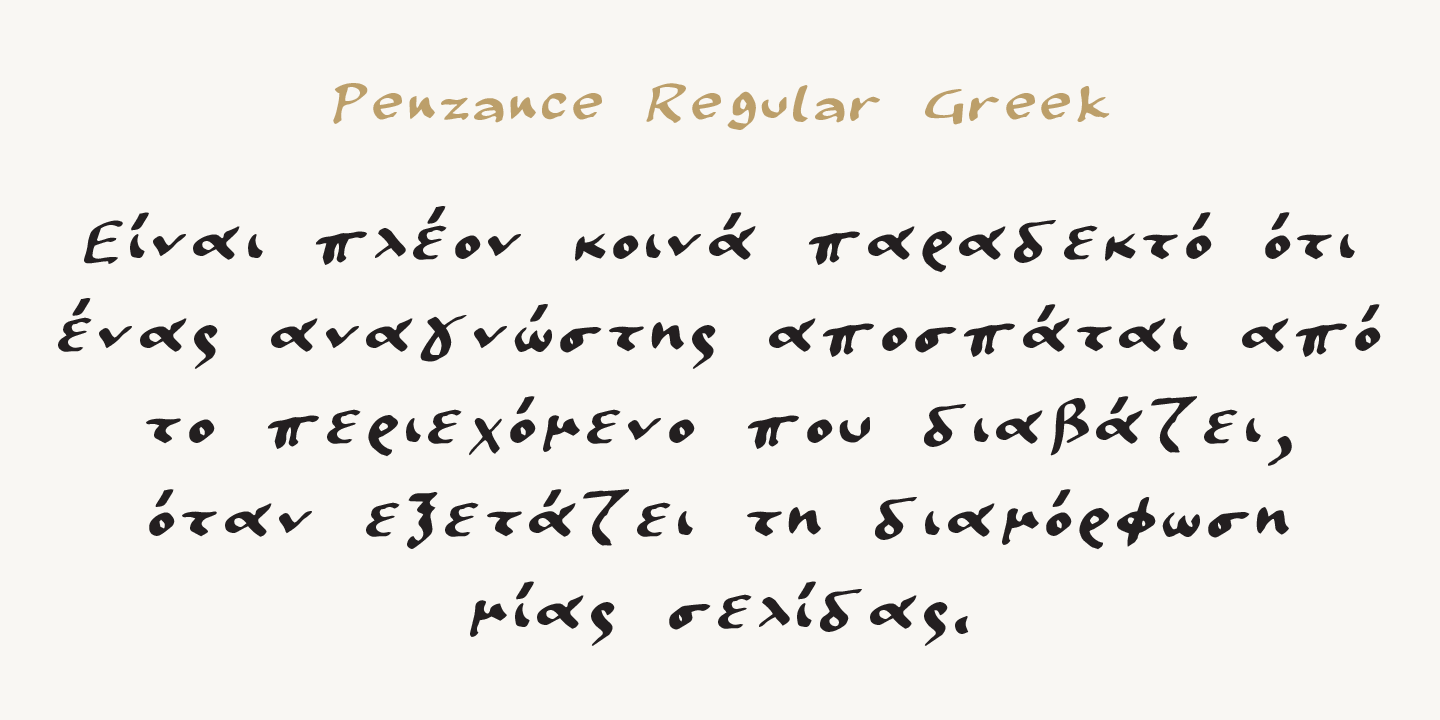 Penzance Regular Greek
Είναι πλέον κοινά παραδεκτό ότι
ένας αναγνώστης αποσπάται από
το περιεχόμενο που διαβάζει,
όταν εξετάζει τη διαμόρφωση
μίας σελίδας.